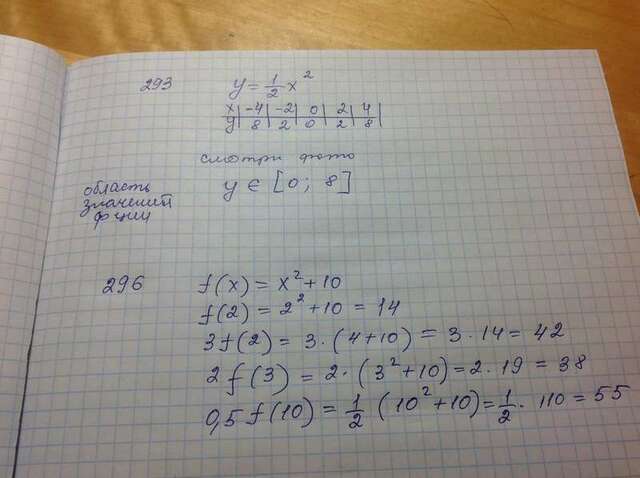 293 y = 1/2 x²
x | -4 | -2 | 0 | 2 | 4 |
y | 8 | 2 | 0 | 2 | 8 |
смотри фото
область
значений
ф ции
y ∈ [0; 8]
296 f(x) = x²+10
f(2) = 2²+10 = 14
3f(2) = 3·(4+10) = 3·14 = 42
2f(3) = 2·(3²+10) = 2·19 = 38
0,5 f(10) = 1/2 (10²+10) = 1/2 · 110 = 55